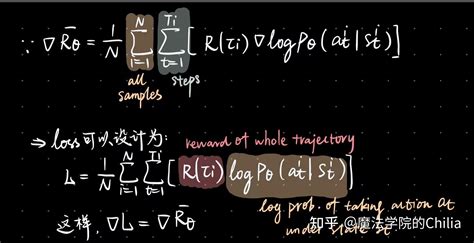 ∵ ∇R̄θ = 1/N ∑_{i=1}^{N} ∑_{t=1}^{Ti} [ R(τi) ∇logPθ(at^i | st^i) ]
all samples
steps
→ loss可以设计为:
reward of whole trajectory
L = 1/N ∑_{i=1}^{N} ∑_{t=1}^{Ti} [ R(τi) logPθ(at^i | st^i) ]
log prob. of taking action at
这样, ∇L = ∇R̄θ
under state st
知乎 @魔法学院的Chilia